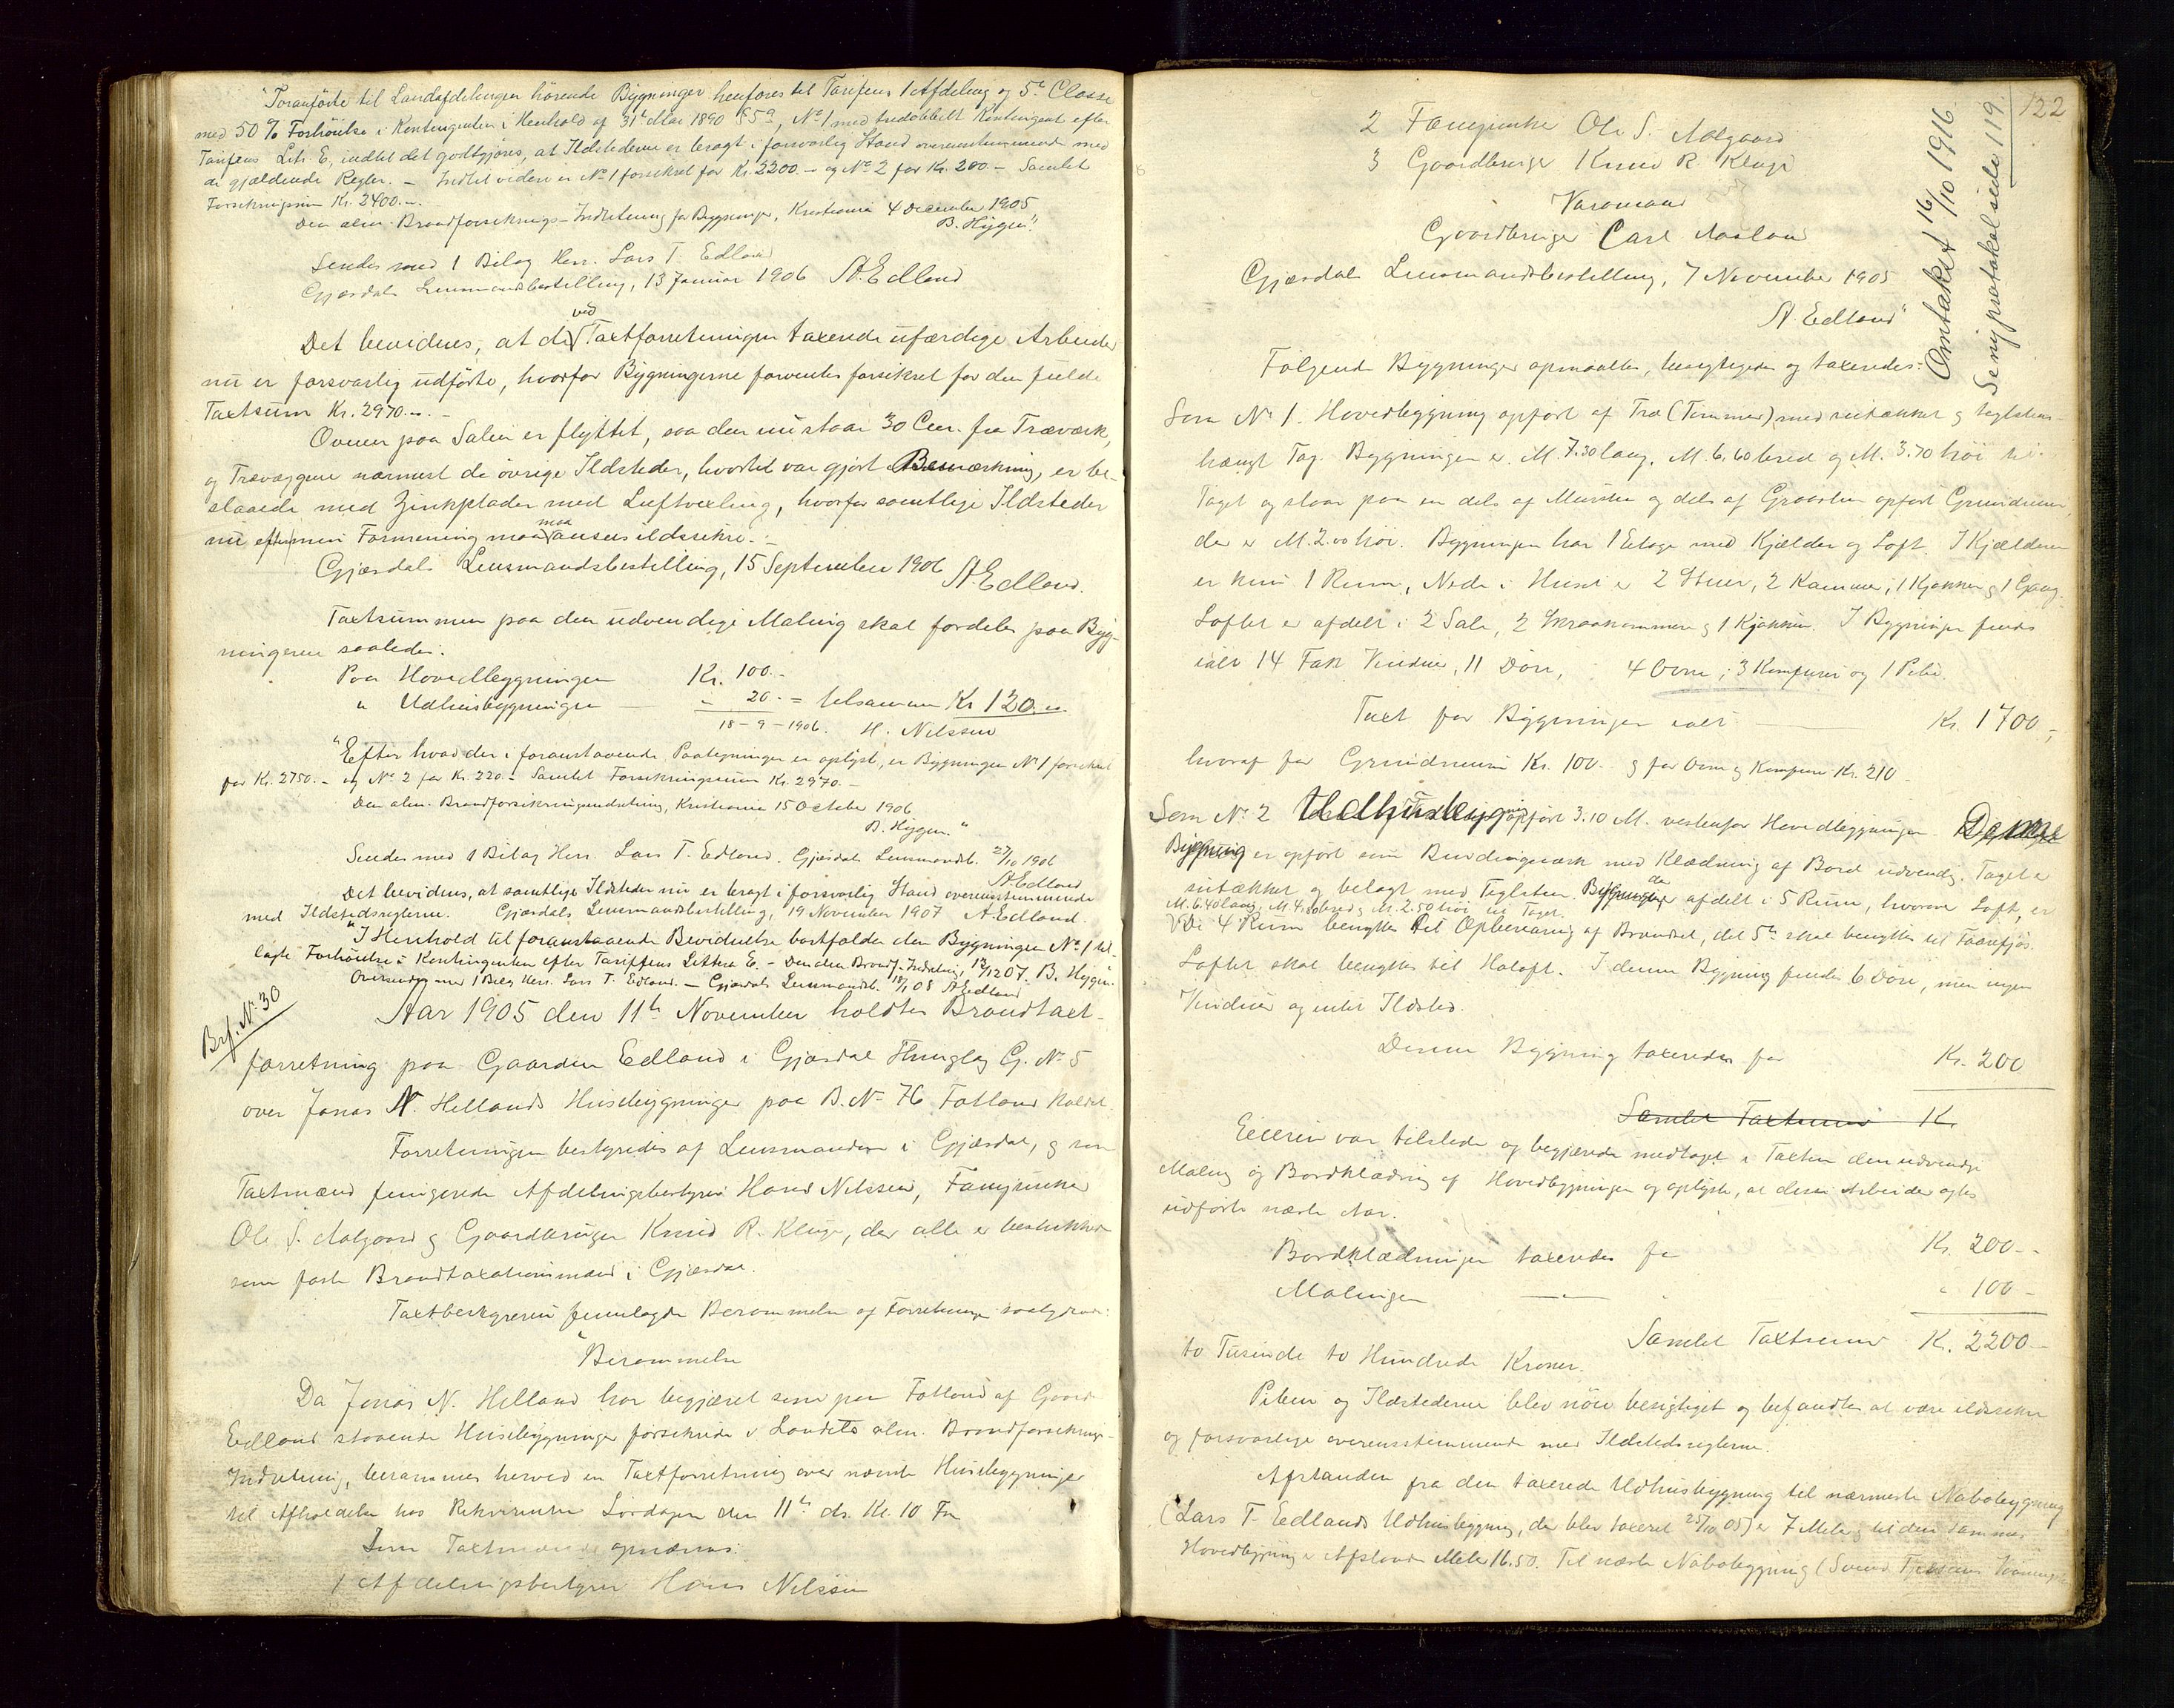 "Foranførte til Landafdelingen hørende Bygninger henføres til Tarifens 1 Afdeling og 5te Classe
med 50 % Forhøielse i Kontingenten i Henhold af 31te Mai 1890 § 5a, No 1 med tredobbelt Kontingent efter
Tarifens Litr. E, indtil det godtgjøres, at Ildstederne er bragt i forsvarlig Stand overensstemmende med
de gjældende Regler. – Indtil videre er No 1 forsikret for Kr. 2200.– og No 2 for Kr. 200.– Samlet
Forsikringssum Kr. 2400.–
Den alm. Brandforsikrings-Indretning for Bygninger, Kristiania 4 December 1905
B. Hygen."
Sendes med 1 Bilag Herr. Lars T. Edland
Gjæsdals Lensmandsbestilling, 13 Januar 1906 A. Edland
ved
Det bevidnes, at de Taxtforretningen taxerede ufærdige Arbeider
nu er forsvarlig udførte, hvorfor Bygningerne forventes forsikret for den fulde
Taxtsum Kr. 2970.–
Ovnen paa Salen er flyttet, saa den nu staar 30 Cm. fra Træværk,
og Trævæggene nærmest de øvrige Ildsteder, hvortil var gjort Bemærkning, er be-
slaaede med Zinkplader med Luftvexling, hvorfor samtlige Ildsteder
maa
nu efter min Formening ansees ildssikre. –
Gjæsdals Lensmandsbestilling, 15 September 1906 A. Edland.
Taxtsummen paa den udvendige Maling skal fordeles paa Byg-
ningerne saaledes:
Paa Hovedbygningen Kr. 100.–
" Udhusbygningen — " 20.– = tilsammen Kr 120.–
18 – 9 – 1906. H. Nilssen
"Efter hvad der i foranstaaende Paategninger er oplyst, er Bygningen No 1 forsikret
for Kr. 2750.– og No 2 for Kr. 220.– Samlet Forsikringssum Kr. 2970.–
Den alm. Brandforsikringsindretning, Kristiania 15 October 1906
B. Hygen."
Sendes med 1 Bilag Herr. Lars T. Edland. Gjæsdals Lensmandsb. 27/10 1906
A. Edland
Det bevidnes, at samtlige Ildsteder nu er bragt i forsvarlig Stand overensstemmende
med Ildstedsreglerne. Gjæsdals Lensmandsbestilling, 19 November 1907 A. Edland.
"I Henhold til foranstaaende Bevidnelse bortfalder den Bygningen No 1 til-
lagte Forhøielse i Kontingenten efter Tariffens Littra E. – Den alm. Brandf. Indretning, 12/12 07. B. Hygen.
Oversendes med 1 Bilag Herr. Lars T. Edland. – Gjæsdals Lensmandsb. 18/1 08 A. Edland
Brf. No 30
Aar 1905 den 11te November holdtes Brandtaxt-
forretning paa Gaarden Edland i Gjæsdal Thinglag G. No 5
over Jonas N. Hellands Husebygninger paa B. No 76 Fotland kaldet.
Forretningen bestyredes af Lensmanden i Gjæsdal, og som
Taxtmænd fungerede Afdelingsbestyrer Hans Nilssen, Fanejunker
Ole S. Aalgaard og Gaardbruger Knud R. Kluge, der alle er beskikkede
som faste Brandtaxationsmænd i Gjæsdal.
Taxtbestyreren fremlagde Berammelse af Forretningen saalydende:
"Berammelse
Da Jonas N. Helland har begjæret sine paa Fotland af Gaard
Edland staaende Husebygninger forsikrede i Landets alm. Brandforsikrings-
Indretning, berammes herved en Taxtforretning over nævnte Husebygninger
til Afholdelse hos Rekvirenten Lørdagen den 11te ds. Kl. 10 Fm
Som Taxtmænd opnævnes:
1 Afdelingsbestyrer Hans Nilssen
122
2 Fanejunker Ole S. Aalgaard
3 Gaardbruger Knud R. Kluge
Varamand
Gaardbruger Carl Aaslan
Gjæsdals Lensmandsbestilling, 7 November 1905
A. Edland"
Omtaket 16/10 1916
Se ny protokol side 119
Følgende Bygninger opmaaltes, besigtigedes og taxeredes:
Som No 1. Hovedbygning opført af Træ (Tømmer) med sutækket og teglstens-
hængt Tag. Bygningen er M. 7.30 lang, M. 6.60 bred og M. 3.70 høi til
Taget og staar paa en dels af Mursten og dels af Graasten opført Grundmur,
der er M. 2.00 høi. Bygningen har 1 Etage med Kjælder og Loft. I Kjælderen
er kun 1 Rum, Nede i Huset er 2 Stuer, 2 Kammer, 1 Kjøkken og 1 Gang.
Loftet er afdelt i 2 Sale, 2 Skraakammere og 1 Kjøkken. I Bygningen findes
ialt 14 Fak Vinduer, 11 Døre, 4 Ovne, 3 Komfurer og 1 Pibe.
Taxt for Bygningen ialt — Kr. 1700.–
hvoraf for Grundmuren Kr. 100.– og for Ovne og Komfurer Kr. 210.–
Som No 2 Udhusbygning opført 3.10 M. vestenfor Hovedbygningen. Denne
Bygning er opført som Bindingsværk med Klædning af Bord udvendig. Taget er
sutækket og belagt med Teglsten. Bygningen er afdelt i 5 Rum, hvorover Loft, er
M. 6.40 lang, M. 4.30 bred og M. 2.50 høi til Taget.
De 4 Rum benyttes til Opbevaring af Brændsel, det 5te skal benyttes til Faarefjøs.
Loftet skal benyttes til Høloft. I denne Bygning findes 6 Døre, men ingen
Vinduer og intet Ildsted.
Denne Bygning taxeredes for Kr. 200
Samlet Taxtsum Kr.
Eieren var tilstede og begjærede medtaget i Taxten den udvendige
Maling og Bordklædning af Hovedbygningen og oplyste, at disse Arbeider agtes
udførte næste Aar.
Bordklædningen taxeredes for Kr. 200.–
Malingen —"— " 100.–
Samlet Taxtsum Kr. 2200.–
to Tusinde to Hundrede Kroner.
Piben og Ildstederne blev nøie besigtiget og befandtes at være ildssikre
og forsvarlige overensstemmende med Ildstedsreglerne.
Afstanden fra den taxerede Udhusbygning til nærmeste Nabobygning
(Lars T. Edlands Udhusbygning, der blev taxeret 25/10 05) er 7 Meter og til den sammes
Hovedbygning er Afstanden Meter 16.50. Til næste Nabobygning (Svend